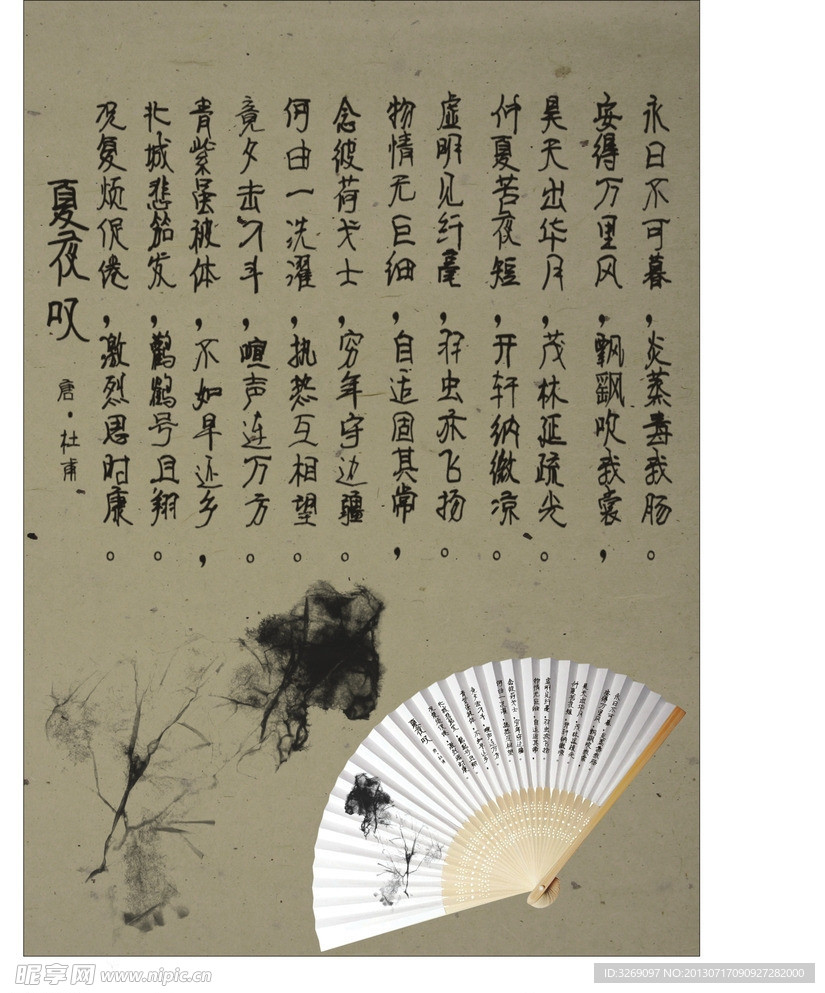 永日不可暮，炎蒸毒我肠。
安得万里风，飘飖吹我裳，
昊天出华月，茂林延疏光。
仲夏苦夜短，开轩纳微凉。
虚明见纤毫，羽虫亦飞扬。
物情无巨细，自适固其常，
念彼荷戈士，穷年守边疆。
何由一洗濯，执热互相望。
竟夕击刁斗，喧声连万方。
青紫虽被体，不如早还乡，
北城悲笳发，鹳鹤号且翔。
况复烦促倦，激烈思时康。
夏夜叹
唐·杜甫
昵享网 www.nipic.cn
ID:3269097 NO:20130717090927282000